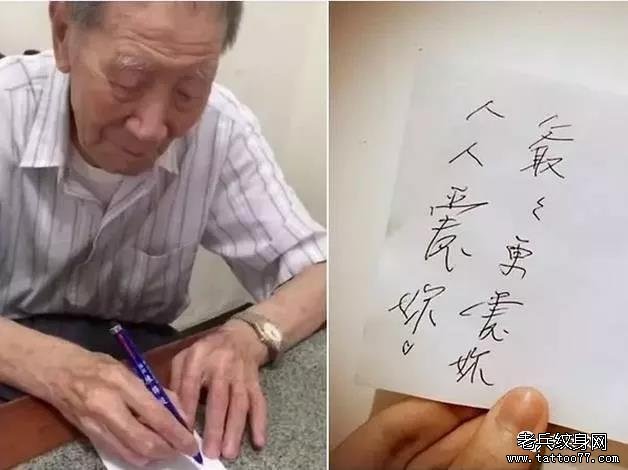 人人愛妳♡
爺々更愛妳
老兵纹身网
www.tattoo77.com